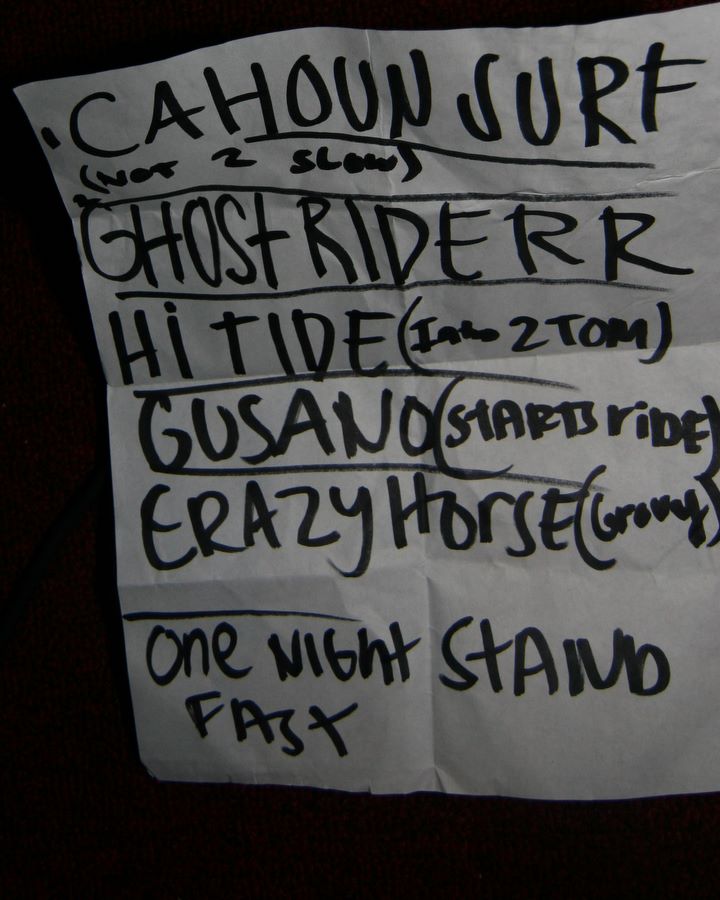 ·CAHOUN SURF
(NOT 2 SLOW)
GHOST RIDERR
Hi TIDE (Into 2 TOM)
GUSANO (STARTS riDE)
CRAZY HOrSE (Groovy)
One NIGht StAND
FAST